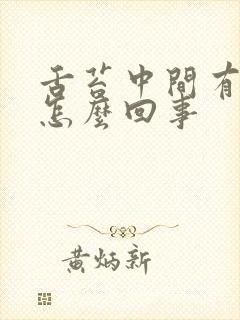 舌苔中間有
怎麼回事
黃炳新